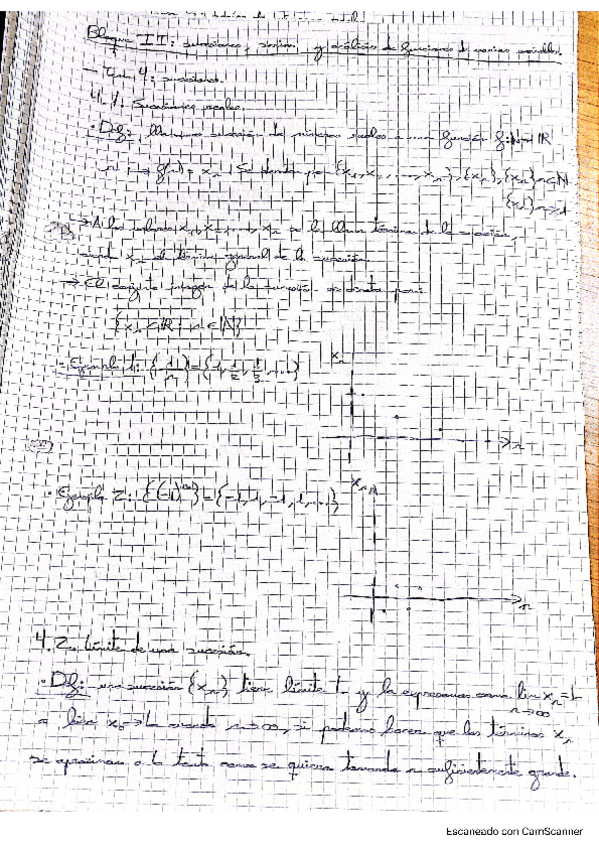 Bloque II: sucesiones, series y análisis de funciones de varias variables.
- Tema 4: sucesiones.
4.1. Sucesiones reales.
· Def: llamamos sucesión de números reales a una función f: N→ℝ
n → f(n) = xₙ | Se denota por {x₁, x₂, ..., xₙ}, {xₙ}, {xₙ} n∈N
{xₙ} n≥1
→ A los valores x₁, x₂, ..., xₙ se les llama términos de la sucesión,
xₙ el término general de la sucesión.
→ El conjunto imagen de la función se denota por:
{xₙ ∈ ℝ | n ∈ N}
· Ejemplo 1: {1/n} = {1, 1/2, 1/3, ...}
xₙ
n
· Ejemplo 2: {(-1)ⁿ} = {-1, 1, -1, 1, ...}
xₙ
n
4.2. Límite de una sucesión.
· Def: una sucesión {xₙ} tiene límite L y la expresamos como lim xₙ = L
n→∞
o bien xₙ → L cuando n→∞, si podemos hacer que los términos xₙ
se aproximen a L tanto como se quiera tomando n suficientemente grande.
Escaneado con CamScanner